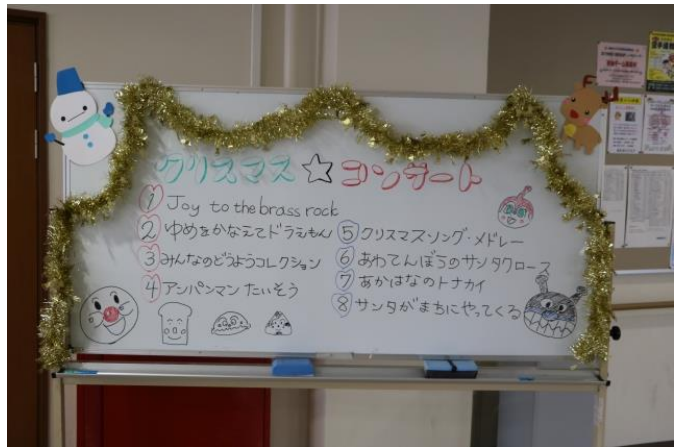 クリスマス☆コンサート
① Joy to the brass rock
② ゆめをかなえてドラえもん
③ みんなのどうようコレクション
④ アンパンマンたいそう
⑤ クリスマスソング・メドレー
⑥ あわてんぼうのサンタクロース
⑦ あかはなのトナカイ
⑧ サンタがまちにやってくる